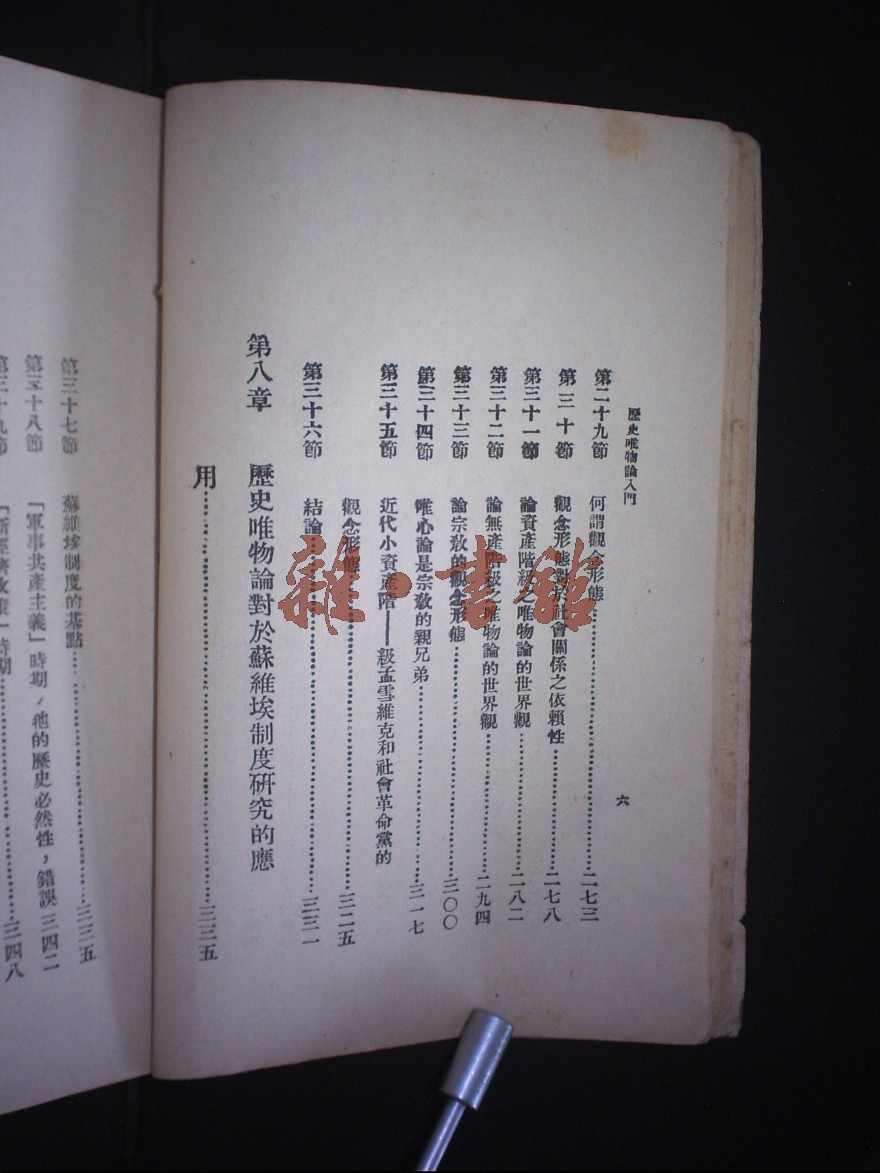 歷史唯物論入門
六
第二十九節 何謂觀念形態……二七三
第三十節 觀念形態對於社會關係之依賴性……二七八
第三十一節 論資產階級之唯物論的世界觀……二八二
第三十二節 論無產階級之唯物論的世界觀……二九四
第三十三節 論宗教的觀念形態……三〇〇
第三十四節 唯心論是宗教的親兄弟……三一七
第三十五節 近代小資產階——級孟雪維克和社會革命黨的
觀念形態……三二五
第三十六節 結論……三三一
第八章 歷史唯物論對於蘇維埃制度研究的應
用……三三五
第三十七節 蘇維埃制度的基點……三三五
第三十八節 「軍事共產主義」時期，牠的歷史必然性，錯誤 三四二
第三十九節 「新經濟政策」時期……三四八
雜·書館